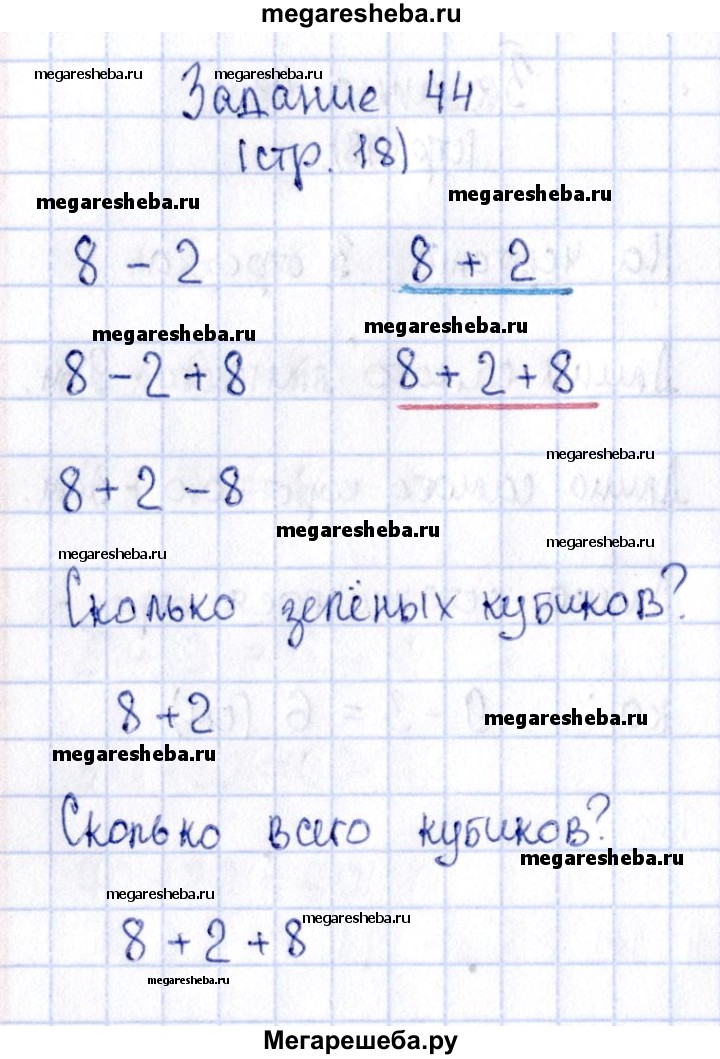 megaresheba.ru
megaresheba.ru megaresheba.ru
Задание 44
(стр. 18)
megaresheba.ru megaresheba.ru
8 - 2 8 + 2
megaresheba.ru megaresheba.ru
8 - 2 + 8 8 + 2 + 8
megaresheba.ru
8 + 2 - 8
megaresheba.ru megaresheba.ru
megaresheba.ru
Сколько зелёных кубиков?
8 + 2 megaresheba.ru
megaresheba.ru
Сколько всего кубиков?
megaresheba.ru
megaresheba.ru megaresheba.ru
8 + 2 + 8
megaresheba.ru
Мегарешеба.ру